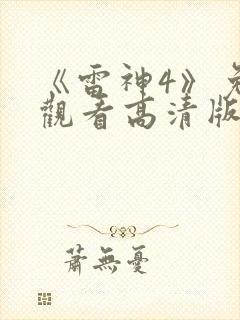 《雷神4》免
觀看高清版
蕭無憂